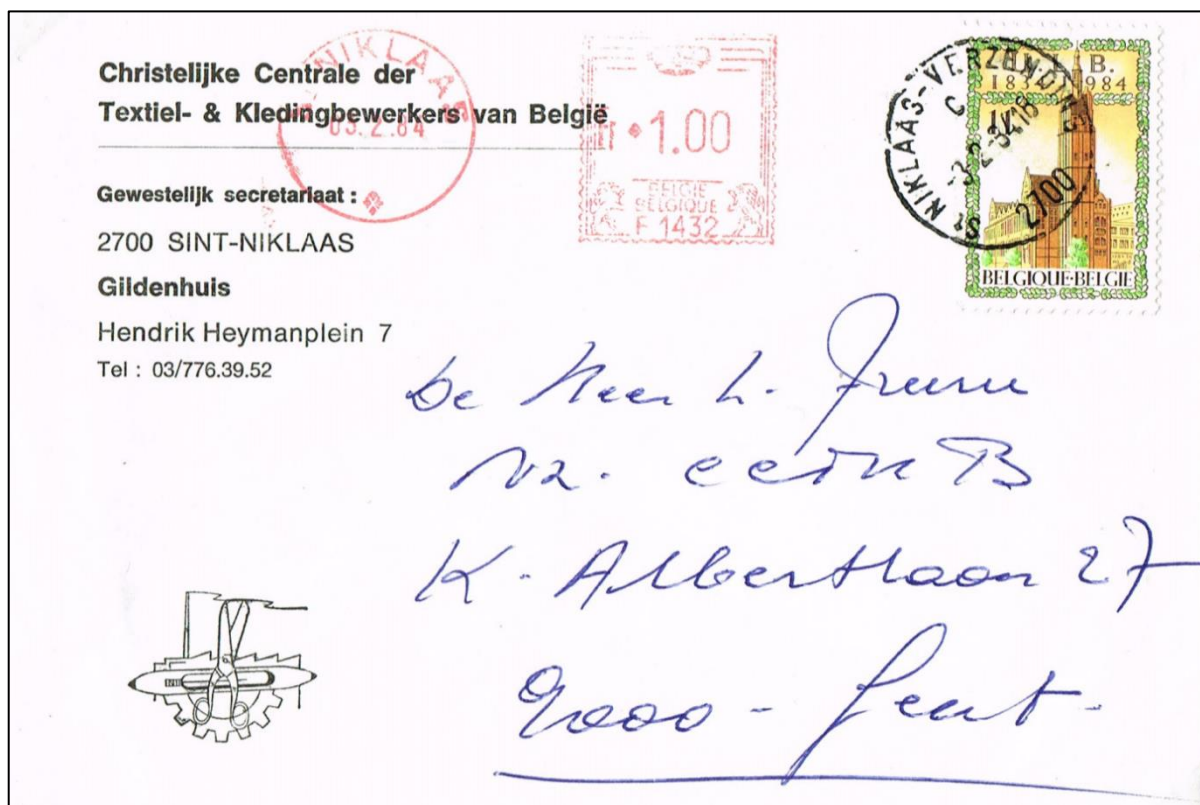 Christelijke Centrale der
Textiel- & Kledingbewerkers van België
Gewestelijk secretariaat :
2700 SINT-NIKLAAS
Gildenhuis
Hendrik Heymanplein 7
Tel : 03/776.39.52
NIKLAAS
03.2.84
fr 1.00
BELGIE
BELGIQUE
F 1432
St NIKLAAS-VERZENDING
C
-3-2-84.18
2700
B.
1834 1984
BELGIQUE-BELGIE
De Heer L.
K. Albertlaan 27
9000 - Gent -